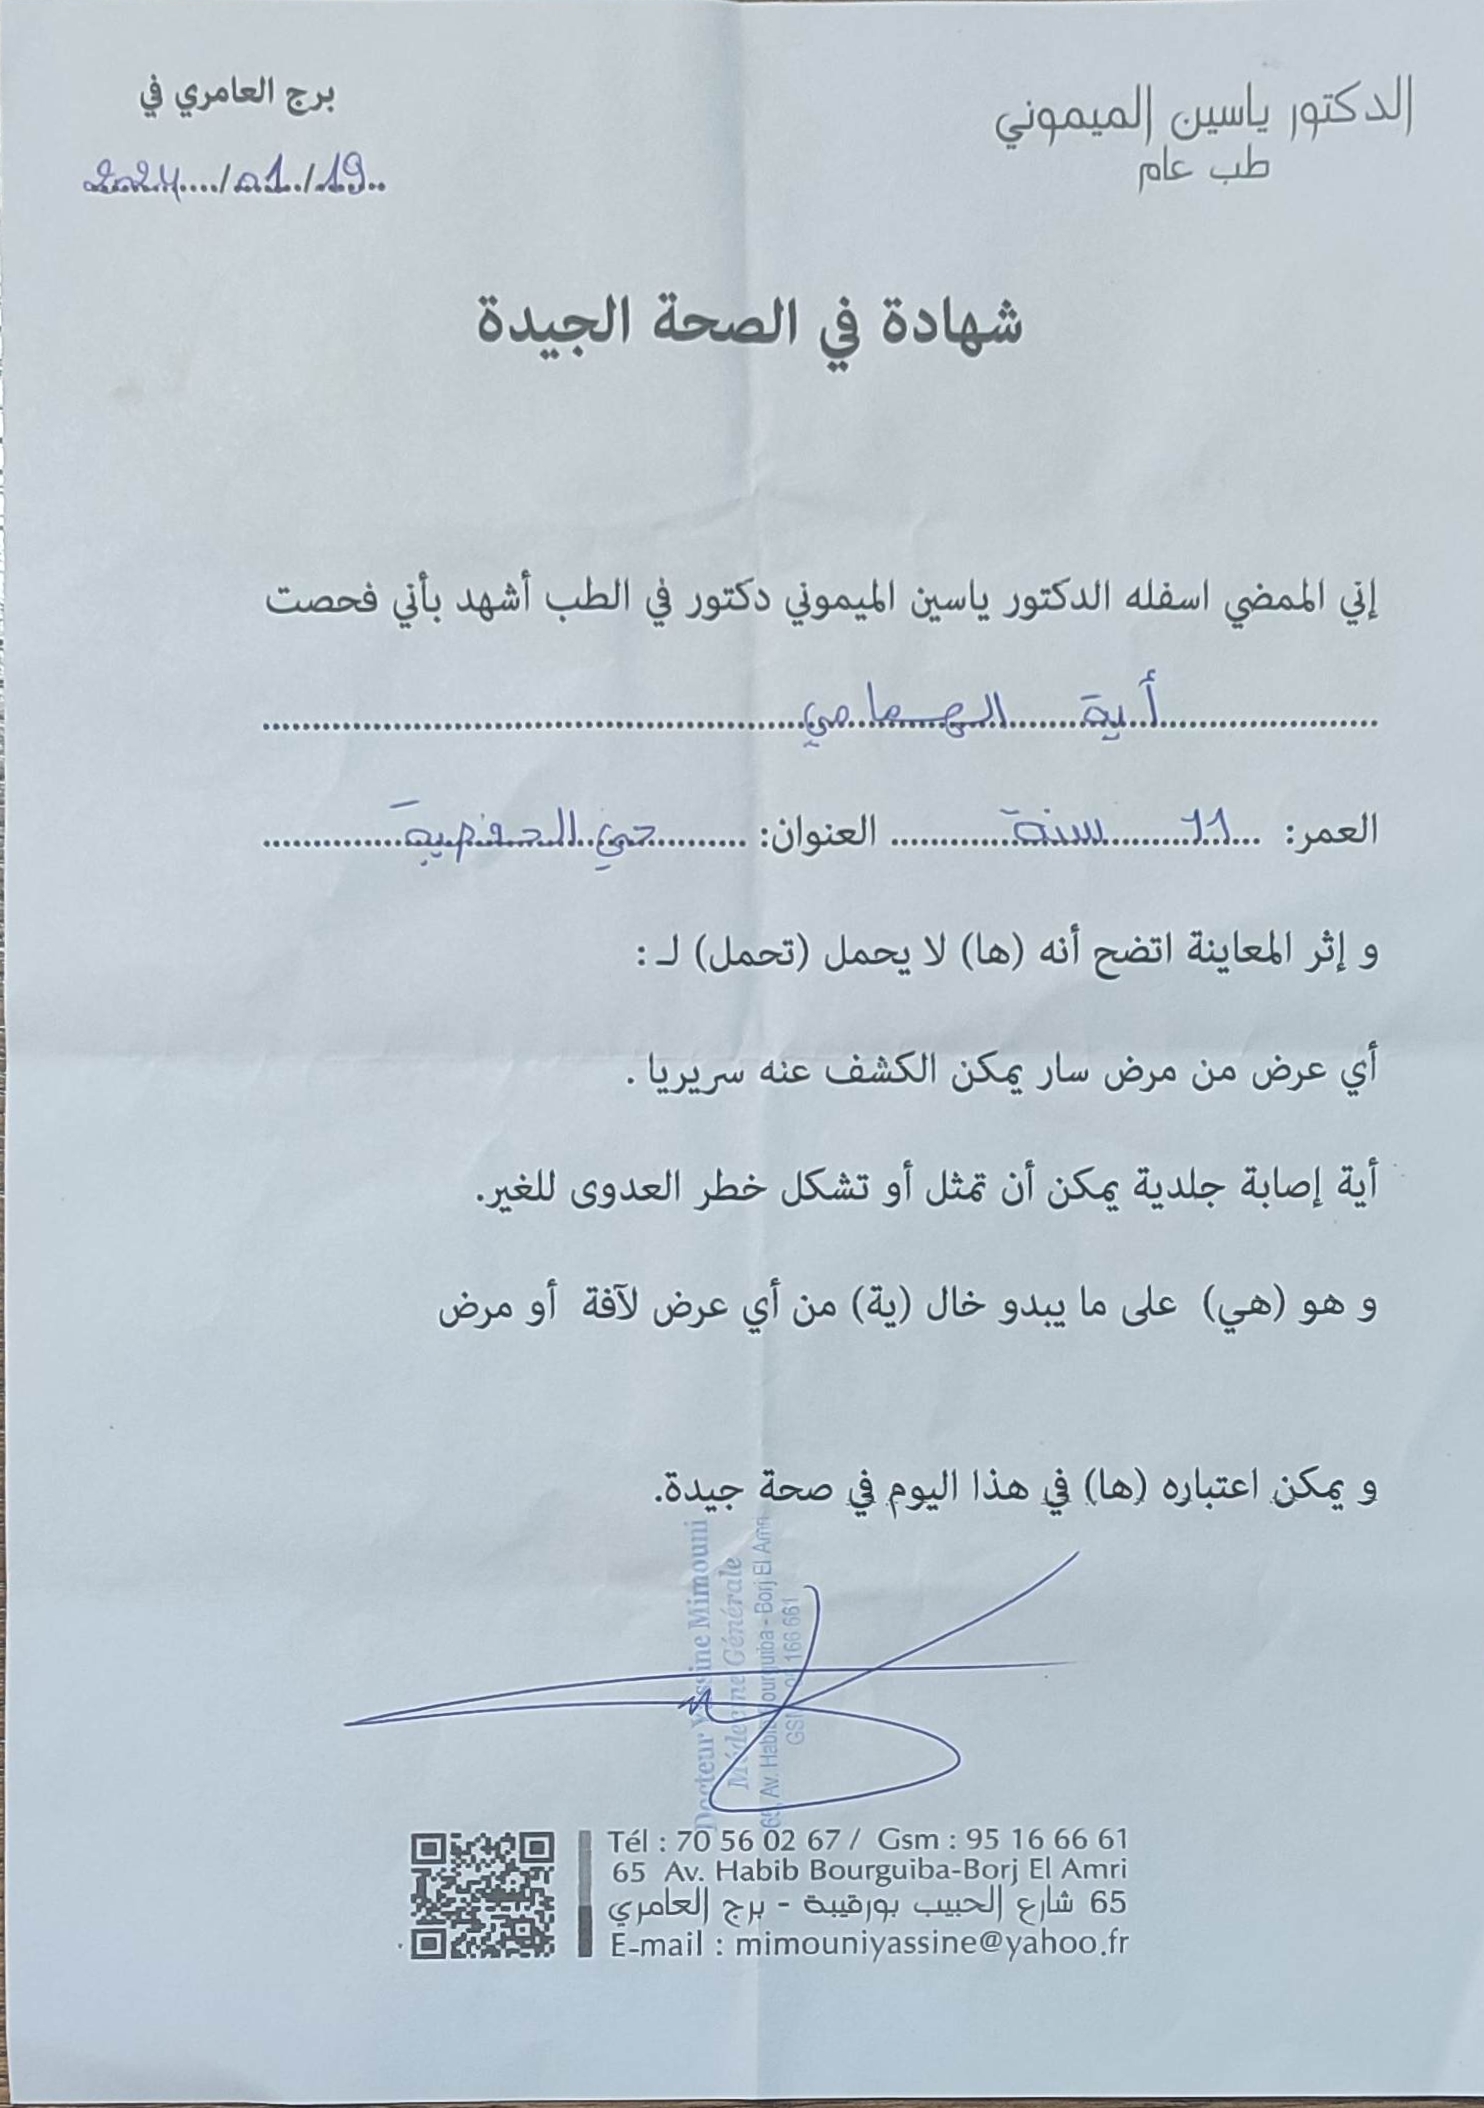 الدكتور ياسين الميموني
طب عام
برج العامري في
2024/01/19
شهادة في الصحة الجيدة
إني الممضي اسفله الدكتور ياسين الميموني دكتور في الطب أشهد بأني فحصت
أية الهمامي
العمر: 11 سنة العنوان: حي الحفصية
و إثر المعاينة اتضح أنه (ها) لا يحمل (تحمل) لـ :
أي عرض من مرض سار يمكن الكشف عنه سريريا .
أية إصابة جلدية يمكن أن تمثل أو تشكل خطر العدوى للغير.
و هو (هي) على ما يبدو خال (ية) من أي عرض لآفة أو مرض
و يمكن اعتباره (ها) في هذا اليوم في صحة جيدة.
Docteur Yassine Mimouni
Médecine Générale
65, Av. Habib Bourguiba - Borj El Amri
GSM 166 661
Tél : 70 56 02 67 / Gsm : 95 16 66 61
65 Av. Habib Bourguiba-Borj El Amri
65 شارع الحبيب بورقيبة - برج العامري
E-mail : mimouniyassine@yahoo.fr